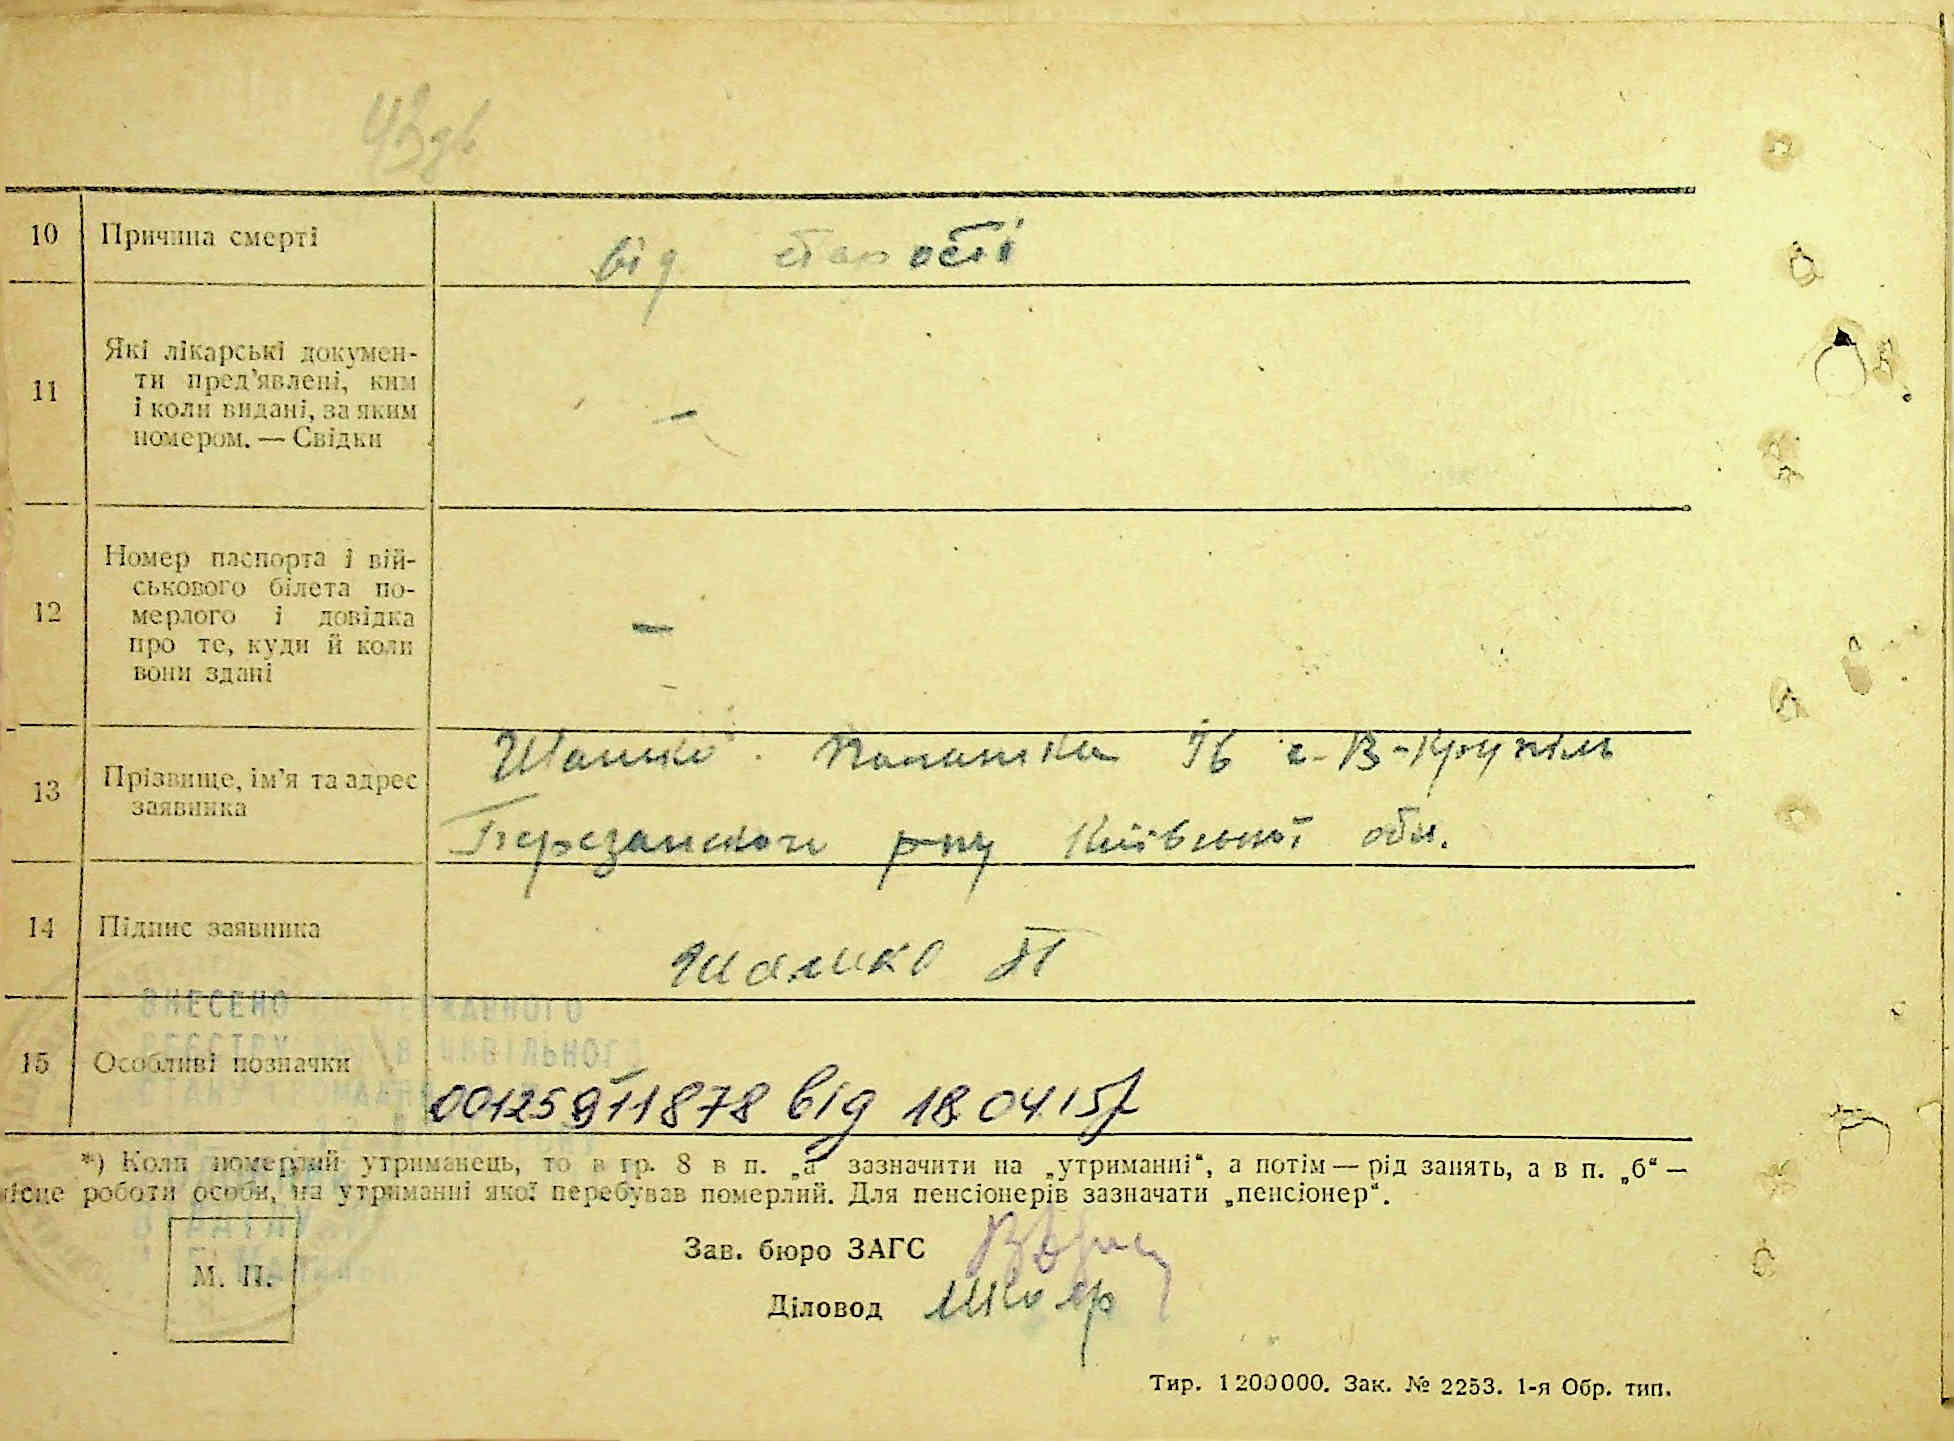 10 Причина смерті від старості
11 Які лікарські докумен-
ти пред'явлені, ким
і коли видані, за яким
номером. — Свідки —
12 Номер паспорта і вій-
ськового білета по-
мерлого і довідка
про те, куди й коли
вони здані —
13 Прізвище, ім'я та адрес
заявника
с-В-Крупіль
Березанського р-ну Київської обл.
14 Підпис заявника
Шалико П
ВНЕСЕНО ДО ДЕРЖАВНОГО
РЕЄСТРУ АКТІВ ЦИВІЛЬНОГО
СТАНУ ГРОМАДЯН
15 Особливі позначки 00125911878 від 18.04.15р
*) Коли померлий утриманець, то в гр. 8 в п. „а“ зазначити на „утриманні“, а потім — рід занять, а в п. „б“ —
місце роботи особи, на утриманні якої перебував померлий. Для пенсіонерів зазначати „пенсіонер“.
М. П.
Зав. бюро ЗАГС
Діловод
Тир. 1200000. Зак. № 2253. 1-я Обр. тип.